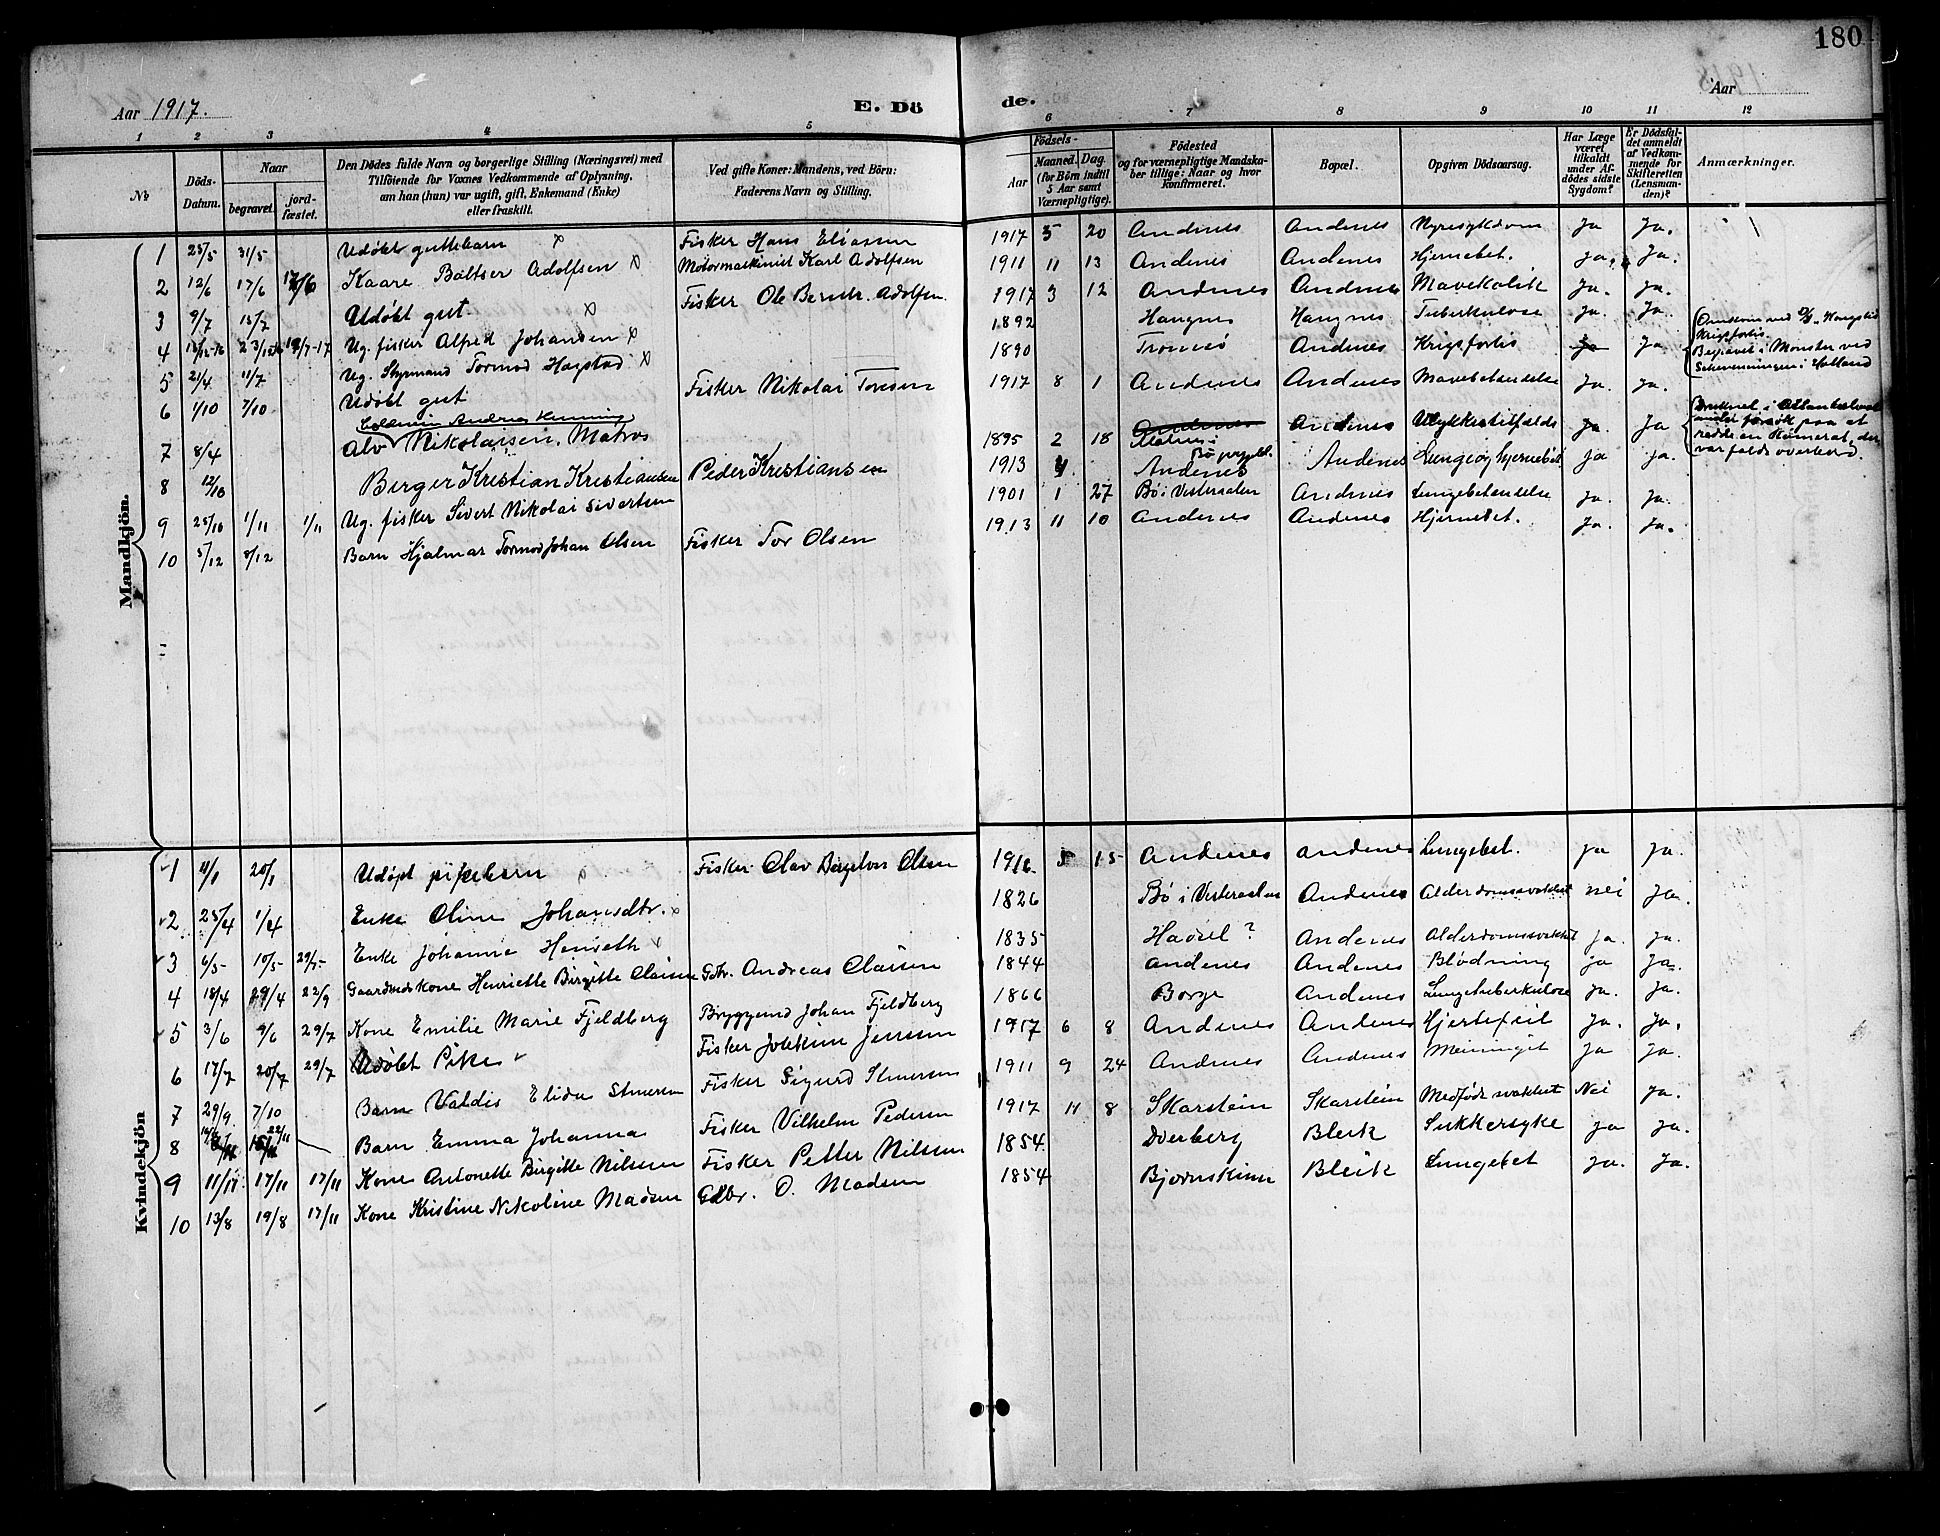 180
Aar 1917.
E. Dö de.
Aar
1 2 3 4 5 6 7 8 9 10 11 12
№
Döds-Datum.
Naar begravet. jordfæstet.
Den Dödes fulde Navn og borgerlige Stilling (Næringsvei) med Tilföiende for Voxnes Vedkommende af Oplysning, om han (hun) var ugift, gift, Enkemand (Enke) eller fraskilt.
Ved gifte Koner: Mandens, ved Börn: Faderens Navn og Stilling.
Födsels-
Aar Maaned. Dag. (for Börn indtil 5 Aar samt Værnepligtige).
Födested og for værnepligtige Mandskaber tillige: Naar og hvor konfirmeret.
Bopæl.
Opgiven Dödsaarsag.
Har Læge været tilkaldt under Afdödes sidste Sygdom?
Er Dödsfaldet anmeldt af Vedkommende for Skifteretten (Lensmanden)?
Anmærkninger.
Mandkjön.
1 25/5 31/5 Udøbt guttebarn x Fisker Hans Eliassen 1917 5 20 Andenes Andenes Nyresykdom Ja Ja.
2 12/6 17/6 17/6 Kaare Baltser Adolfsen x Motormaskinist Karl Adolfsen 1911 11 13 Andenes Andenes Hjernebet. Ja. Ja.
3 9/7 15/7 Udøbt gut. x Fisker Ole Bernh. Adolfsen 1917 3 12 Andenes Andenes Mavekolik Ja. Ja.
4 Ug. fisker Alfred Johansen x 1892 Tuberkulose Ja. Ja.
5 21/4 11/7 Ug. Styrmand Tormod Hogstad x 1890 Tromsø Andenes Krigsforlis Ja Ja
Omkom ved Krigsforlis. Begravet i Monster ved Scheveningen i Holland
6 1/10 7/10 Udøbt gut Fisker Nikolai Tonsen 1917 8 1 Andenes Andenes Mavebetændelse Ja. Ja.
7 8/4 Alv Nikolaisen, Matros 1895 2 18 Andenes Bø prgjeld. Andenes Ulykkestilfælde Ja. Ja
Druknet i Atlanterhavet under forsøk paa at redde en Kamerat, der var faldt overbord.
8 12/10 Birger Kristian Kristiansen Peder Kristiansen 1913 4 Andenes Andenes Lunge og hjernebet Ja Ja.
9 25/10 1/11 1/11 Ug. fisker Sivert Nikolai Sivertsen 1901 1 27 Bø i Vesteraalen Andenes Lungebetændelse Ja. Ja.
10 5/12 8/12 Barn Hjalmar Tormod Johan Olsen Fisker Tor Olsen 1913 11 10 Andenes Andenes Hjernebet. Ja. Ja.
Kvindekjön
1 4/1 20/1 Udøpt pikebarn x Fisker Olav Bergeton Olsen 1916 5 15 Andenes Andenes Lungebet. Ja Ja.
2 25/4 1/4 Enke Oline Johansdtr. x 1826 Bø i Vesteraalen Andenes Alderdomssvakhet Nei Ja.
3 6/5 10/5 29/7 Enke Johanne Henreth 1835 Hadsel? Andenes Alderdomssvakhet Ja. Ja.
4 18/4 29/4 22/9 Gaardmdskone Henriette Birgitte Claisen Gdbr. Andreas Claisen 1844 Andenes Andenes Blødning Ja Ja.
5 3/6 9/6 29/7 Kone Emilie Marie Fjeldberg Bryggemd Johan Fjeldberg 1866 Borge Andenes Lungetuberkulose Ja. Ja.
6 17/7 20/7 29/7 Udøbt Pike Fisker Joakim Jenssen 1917 6 8 Andenes Andenes Hjertefeil Ja. Ja.
7 29/9 7/10 Barn Valdis Elida Fisker Sigurd 1911 9 24 Andenes Andenes Meninngit Ja Ja.
8 22/11 Barn Emma Johanna Fisker Vilhelm Pedersen 1917 11 8 Skarstein Skarstein Medfødt svakhet Nei Ja.
9 11/11 17/11 17/11 Kone Antonette Birgitte Nilssen Fisker Petter Nilssen 1854 Dverberg Bleik Sukkersyke Ja Ja.
10 13/8 19/8 17/11 Kone Kristine Nikoline Madsen Gdbr. O. Madsen 1854 Bjørnskinn Bleik Lungebet Ja. Ja.